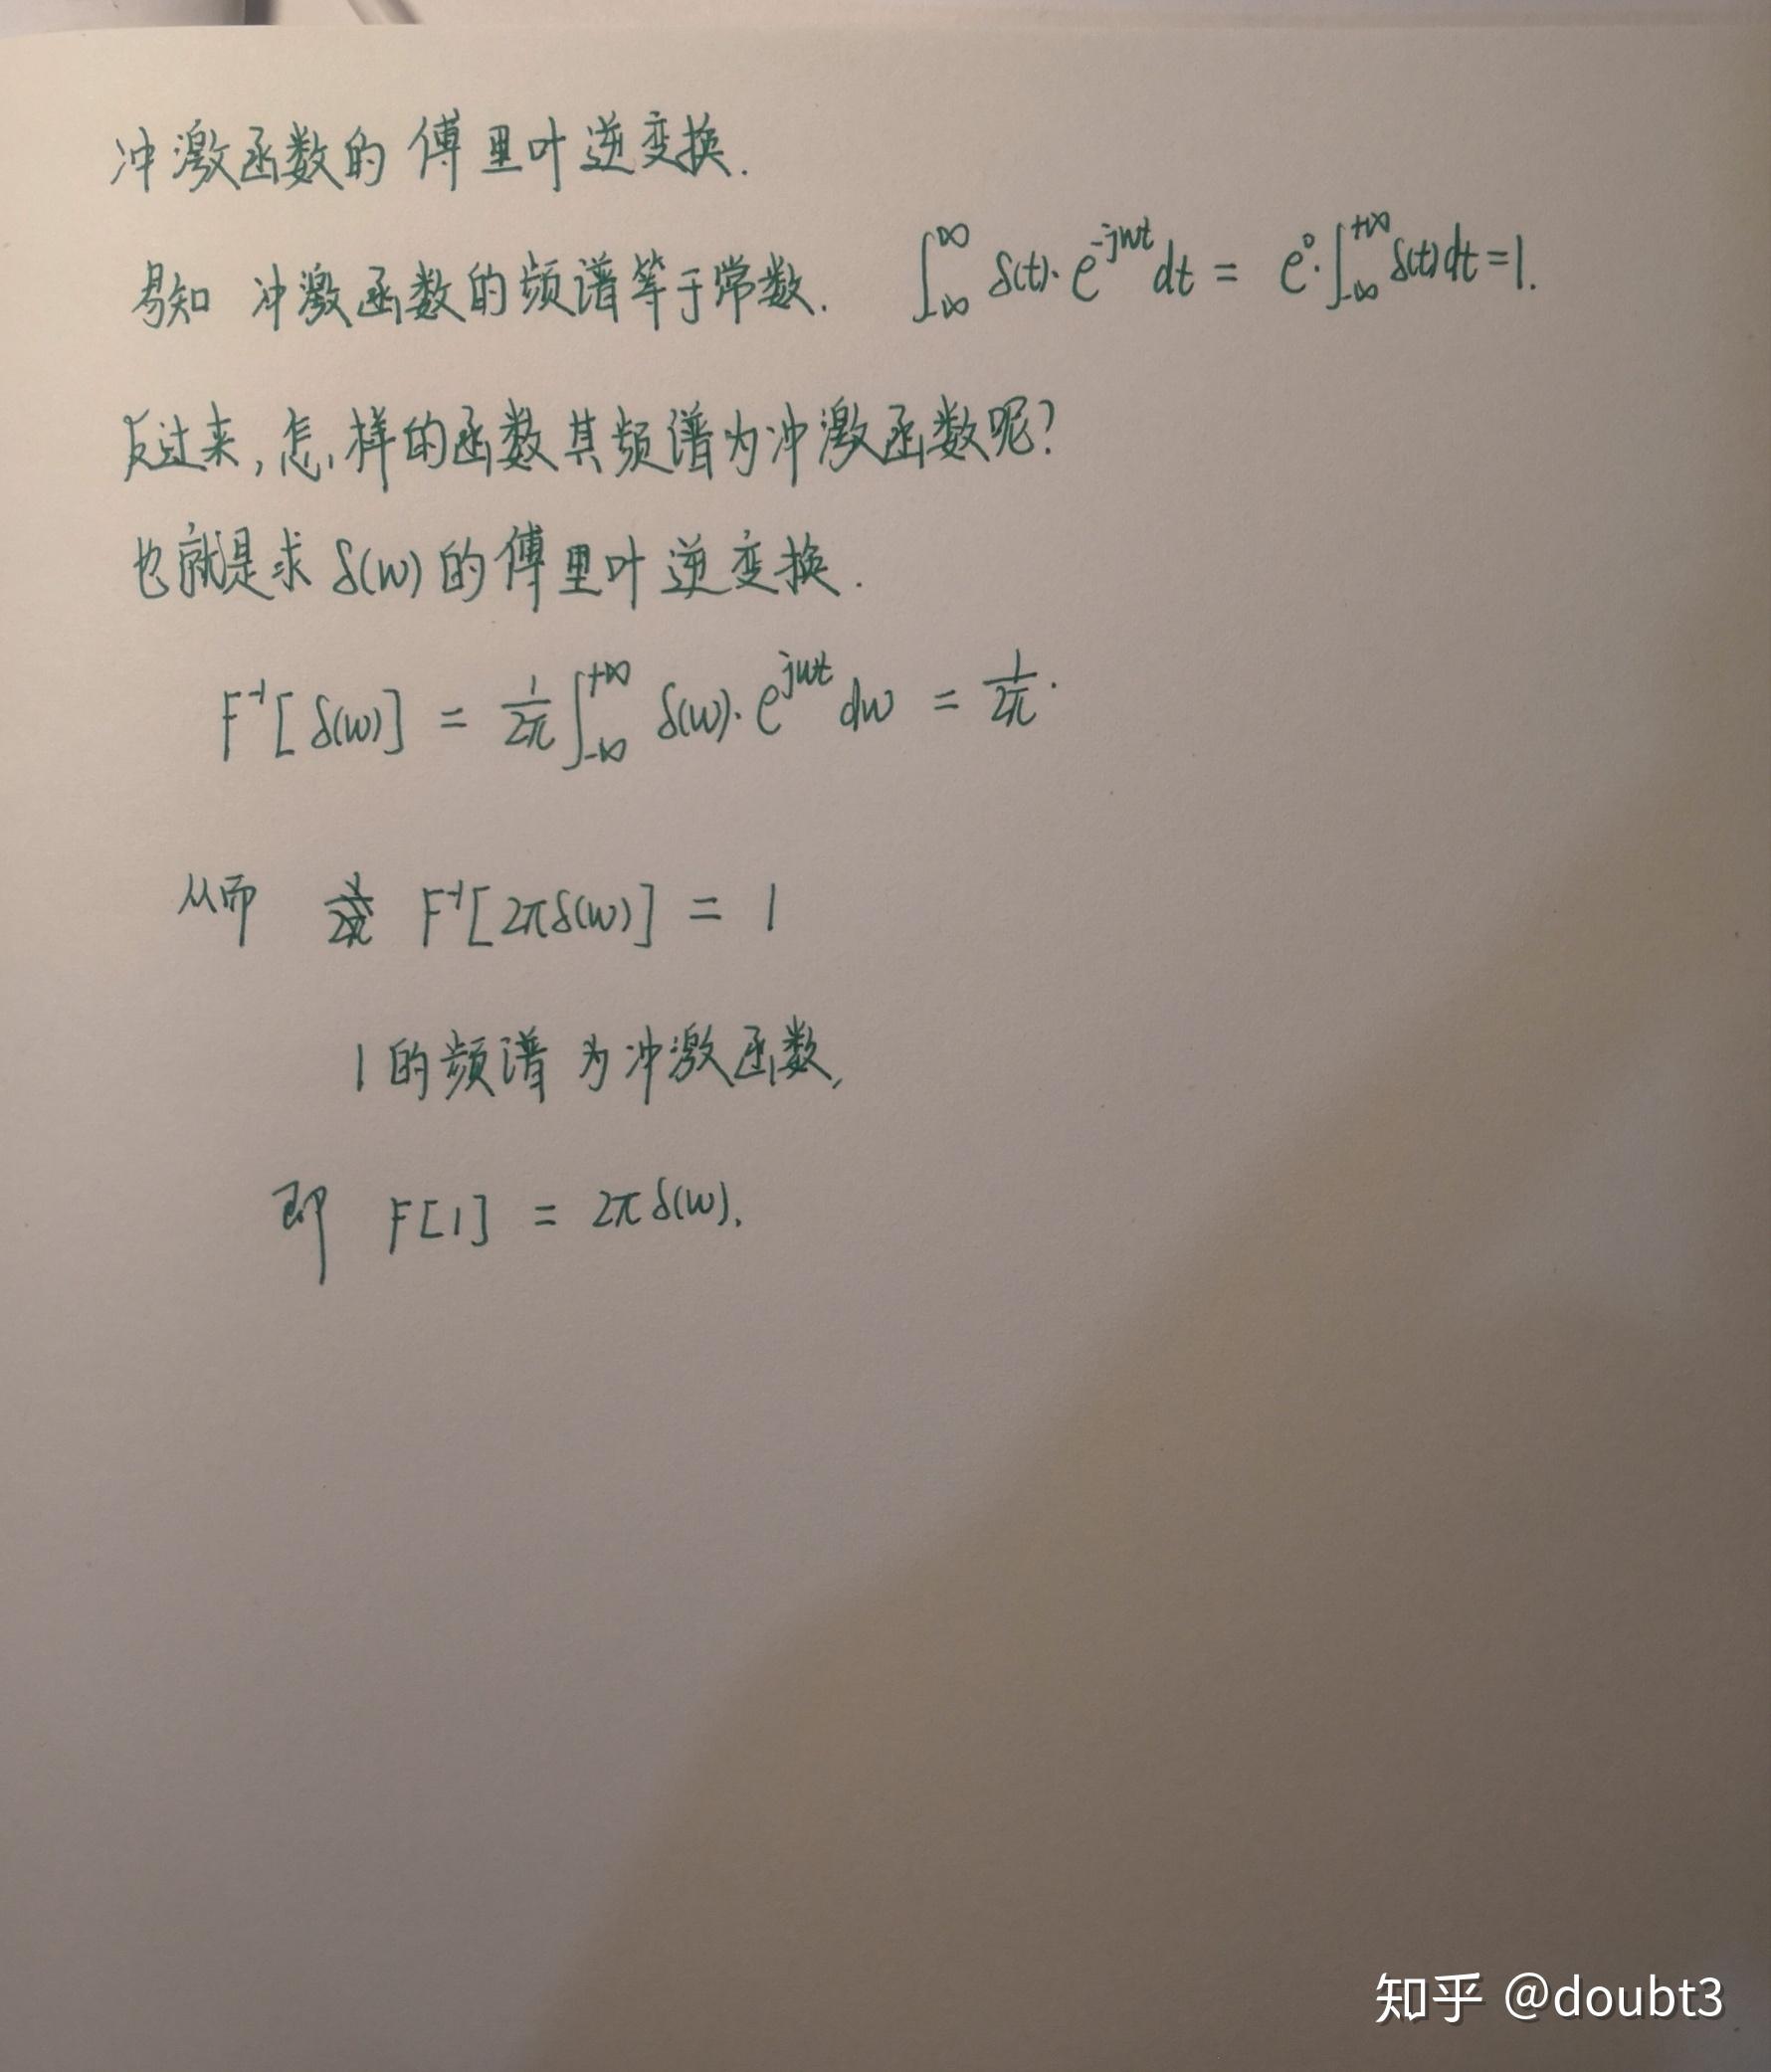 冲激函数的傅里叶逆变换.
易知 冲激函数的频谱等于常数. ∫_{-∞}^{∞} δ(t)·e^{-jwt} dt = e^0·∫_{-∞}^{+∞} δ(t)dt = 1.
反过来,怎样的函数其频谱为冲激函数呢?
也就是求 δ(w) 的傅里叶逆变换.
F^{-1}[δ(w)] = \frac{1}{2π} ∫_{-∞}^{+∞} δ(w)·e^{jwt} dw = \frac{1}{2π}.
从而 F^{-1}[2πδ(w)] = 1
1的频谱为冲激函数,
即 F[1] = 2πδ(w).
知乎 @doubt3